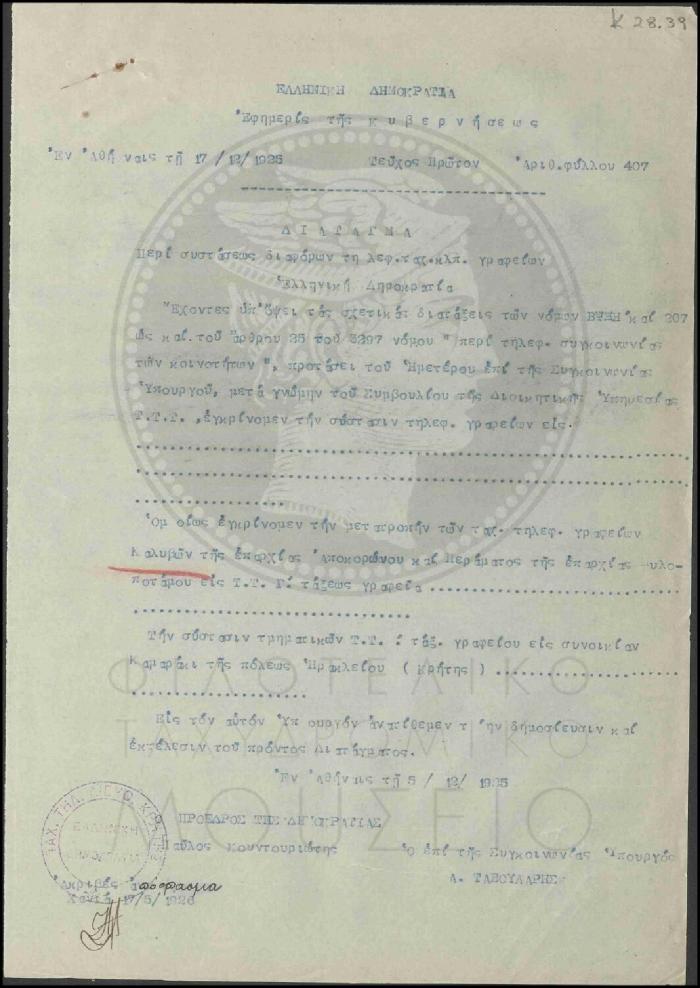 K 28.39
ΕΛΛΗΝΙΚΗ ΔΗΜΟΚΡΑΤΙΑ
Ἐφημερίς τῆς κυβερνήσεως
Ἐν Ἀθήναις τῇ 17/12/1925 Τεῦχος Πρῶτον Ἀριθ.φύλλου 407
ΔΙΑΤΑΓΜΑ
Περί συστάσεως διαφόρων τηλεφ.ταχ.κλπ. γραφείων
Ἑλληνική Δημοκρατία
Ἔχοντες ὑπ'ὄψει τάς σχετικάς διατάξεις τῶν νόμων ΒΨΞΗ καί 207
ὡς καί τοῦ ἄρθρου 25 τοῦ 3297 νόμου " περί τηλεφ. συγκοινωνίας
τῶν κοινοτήτων ", προτάσει τοῦ Ἡμετέρου ἐπί τῆς Συγκοινωνίας
Ὑπουργοῦ, μετά γνώμην τοῦ Συμβουλίου τῆς Διοικητικῆς Ὑπηρεσίας
Τ.Τ.Τ. ,ἐγκρίνομεν τήν σύστασιν τηλεφ. γραφείων εἰς.
Ὁμοίως ἐγκρίνομεν τήν μετατροπήν τῶν ταχ. τηλεφ. γραφείων
Καλυβῶν τῆς ἐπαρχίας Ἀποκορώνου καί Περάματος τῆς ἐπαρχίας Μυλο-
ποτάμου εἰς Τ.Τ. Γ! τάξεως γραφεῖα
Τήν σύστασιν τμηματικῶν Τ.Τ. : τάξ. γραφείου εἰς συνοικίαν
Καμαράκι τῆς πόλεως Ἡρακλείου ( Κρήτης )
Εἰς τόν αὐτόν Ὑπουργόν ἀνατίθεμεν τήν δημοσίευσιν καί
ἐκτέλεσιν τοῦ πρόντος Διατάγματος.
Ἐν Ἀθήναις τῇ 5 / 12 /1925
ΠΡΟΕΔΡΟΣ ΤΗΣ ΔΗΜΟΚΡΑΤΙΑΣ
Παῦλος Κουντουριώτης Ὁ ἐπί τῆς Συγκοινωνίας Ὑπουργός
Α. ΤΑΒΟΥΛΑΡΗΣ
ΕΛΛΗΝΙΚΗ
ΔΗΜΟΚΡΑΤΙΑ
Ἀκριβές ἀπόσπασμα
Χανιά 17/5/1926
ΦΙΛΟΤΕΛΙΚΟ
ΤΑΧΥΔΡΟΜΙΚΟ
ΜΟΥΣΕΙΟ